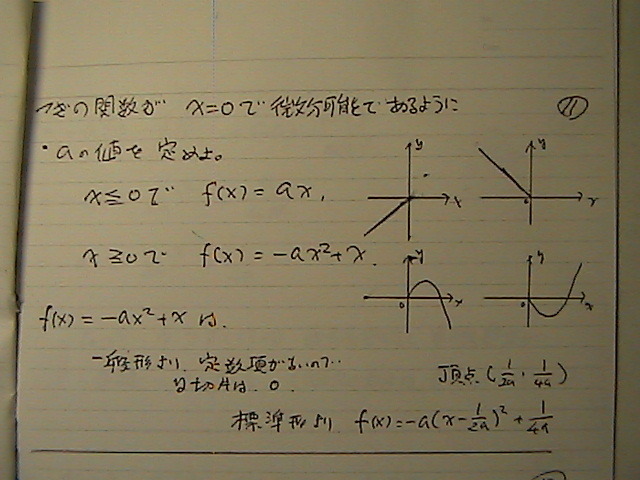 つぎの関数が x=0で 微分可能で あるように ⑪
・aの値を 定めよ。
x≦0で f(x)=ax,
x≧0で f(x)=-ax²+x.
y x
y 0 x
y 0 x
y 0 x
f(x)=-ax²+x は.
一般形より 定数項がないので…
y切片は 0.
頂点(1/2a, 1/4a)
標準形より f(x)=-a(x-1/2a)²+1/4a